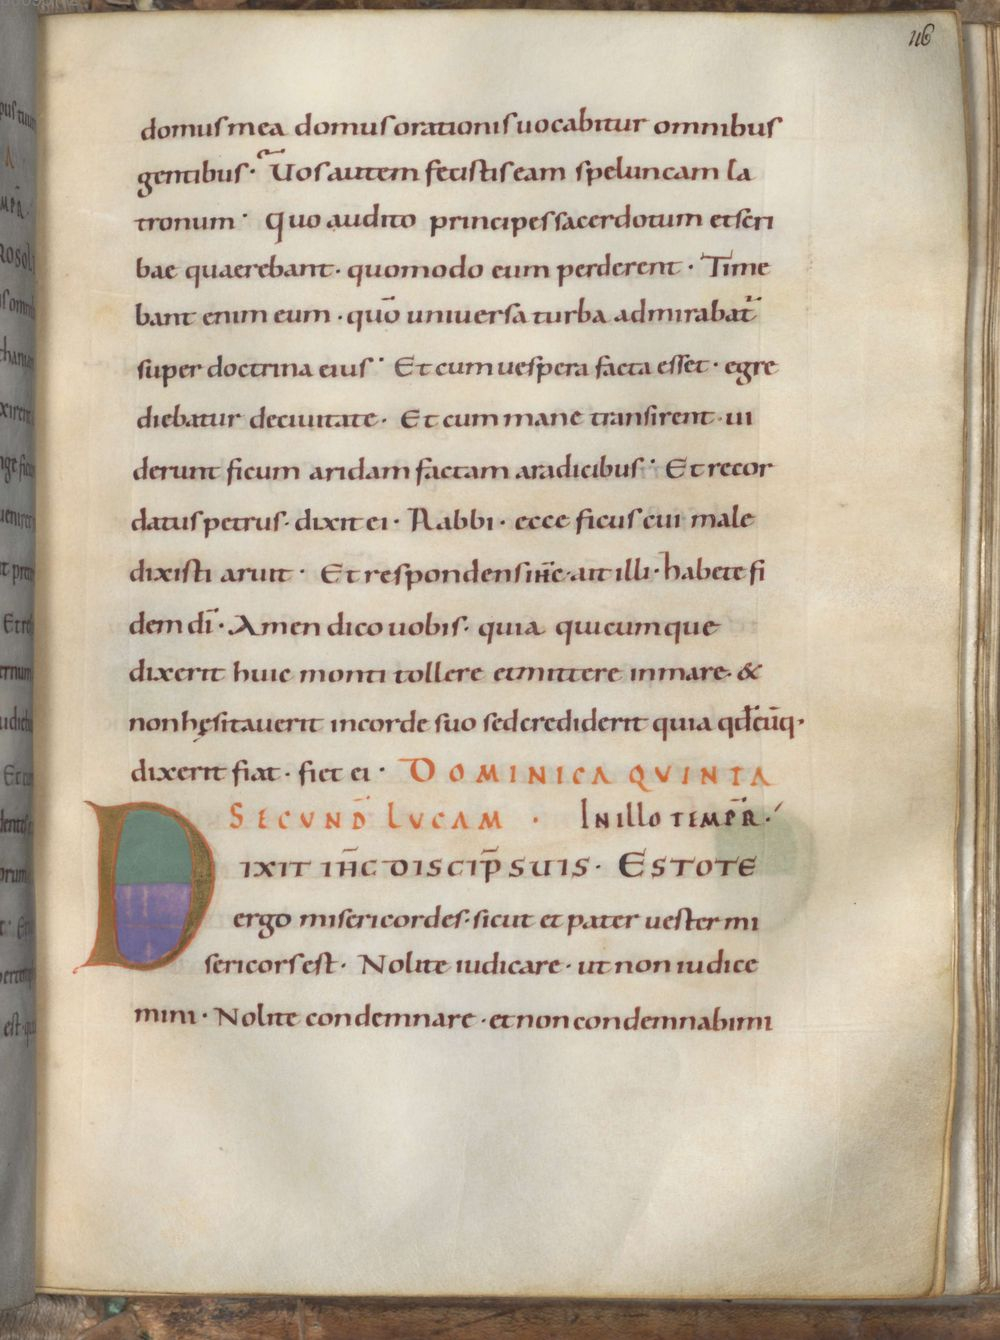 116
domus mea domus orationis uocabitur omnibus
gentibus· Uos autem fecistis eam speluncam la
tronum· Quo audito principes sacerdotum et scri
bae quaerebant· quomodo eum perderent· Time
bant enim eum· quō uniuersa turba admirabat̄
super doctrina eius· Et cum uespera facta esset· egre
diebatur de ciuitate· Et cum mane transirent· ui
derunt ficum aridam factam a radicibus· Et recor
datus petrus· dixit ei· Rabbi· ecce ficus cui male
dixisti aruit· Et respondens ih̄c· ait illi· habete fi
dem dī· Amen dico uobis· quia quicumque
dixerit huic monti tollere et mittere in mare· &
non hęsitauerit in corde suo sed crediderit quia qđcūq·
dixerit fiat· fiet ei· DOMINICA QVINTA
SECVND̄ LVCAM · IN ILLO TEMPR̄·
DIXIT IH̄C DISCIP̄ SUIS· ESTOTE
ergo misericordes· sicut et pater uester mi
sericors est· Nolite iudicare· ut non iudice
mini· Nolite condemnare· et non condemnabimi